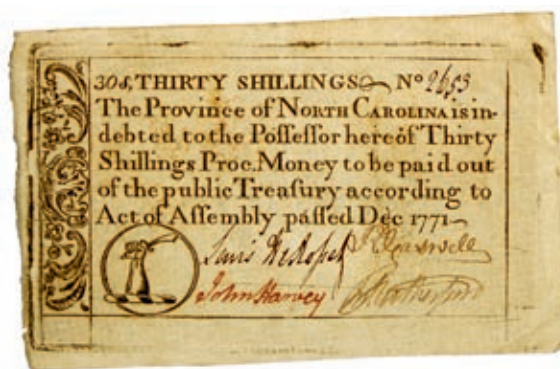 30s, THIRTY SHILLINGS No 2653
The Province of NORTH CAROLINA is in-
debted to the Poſſeſſor hereof Thirty
Shillings Proc. Money to be paid out
of the public Treaſury according to
Act of Aſſembly paſſed Dec 1771
Lewis DeRosset R Caswell
John Harvey Rutherfurd